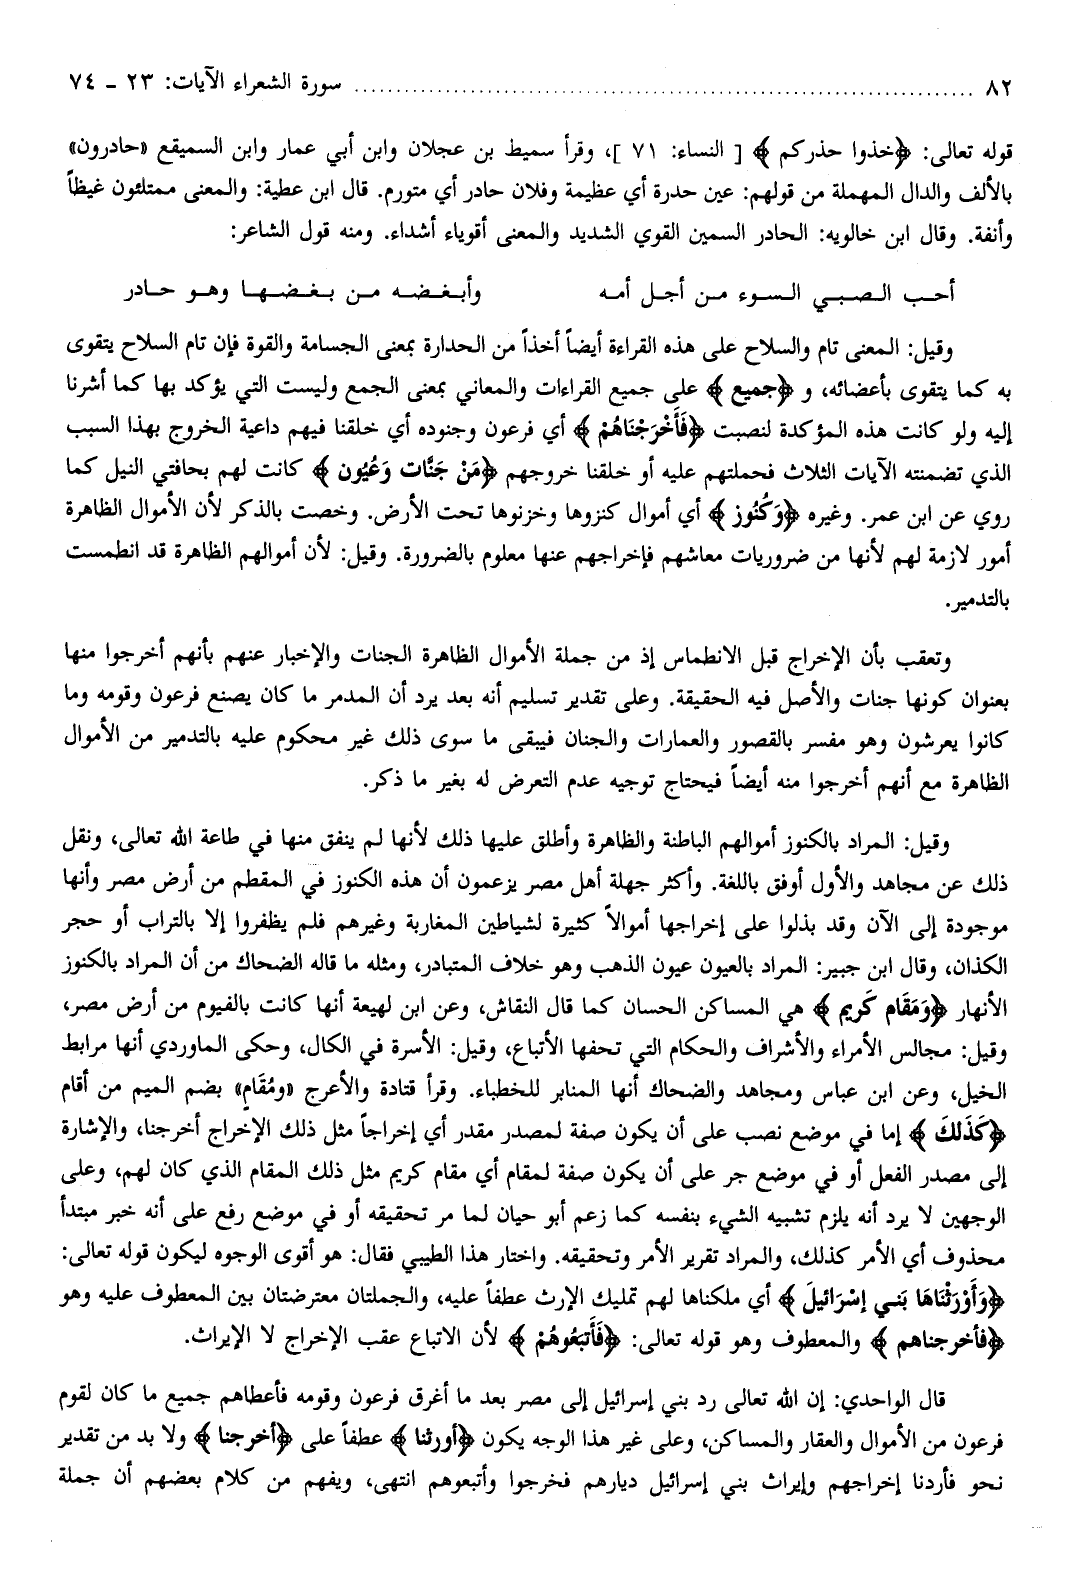 ٨٢ ........ سورة الشعراء الآيات: ٢٣ ـ ٧٤
قوله تعالى: ﴿خذوا حذركم﴾ [ النساء: ٧١ ]، وقرأ سميط بن عجلان وابن أبي عمار وابن السميقع «حادرون»
بالألف والدال المهملة من قولهم: عين حدرة أي عظيمة وفلان حادر أي متورم. قال ابن عطية: والمعنى ممتلئون غيظاً
وأنفة. وقال ابن خالويه: الحادر السمين القوي الشديد والمعنى أقوياء أشداء. ومنه قول الشاعر:
أحـب الـصـبـي الـسـوء مـن أجـل أمـه وأبـغـضـه مـن بـغـضـهـا وهـو حـادر
وقيل: المعنى تام والسلاح على هذه القراءة أيضاً أخذاً من الحدارة بمعنى الجسامة والقوة فإن تام السلاح يتقوى
به كما يتقوى بأعضائه، و ﴿جميع﴾ على جميع القراءات والمعاني بمعنى الجمع وليست التي يؤكد بها كما أشرنا
إليه ولو كانت هذه المؤكدة لنصبت ﴿فَأَخْرَجْنَاهُمْ﴾ أي فرعون وجنوده أي خلقنا فيهم داعية الخروج بهذا السبب
الذي تضمنته الآيات الثلاث فحملتهم عليه أو خلقنا خروجهم ﴿مَنْ جَنَّات وَعُيُون﴾ كانت لهم بحافتي النيل كما
روي عن ابن عمر. وغيره ﴿وَكُنُوز﴾ أي أموال كنزوها وخزنوها تحت الأرض. وخصت بالذكر لأن الأموال الظاهرة
أمور لازمة لهم لأنها من ضروريات معاشهم فإخراجهم عنها معلوم بالضرورة. وقيل: لأن أموالهم الظاهرة قد انطمست
بالتدمير.
وتعقب بأن الإخراج قبل الانطماس إذ من جملة الأموال الظاهرة الجنات والإخبار عنهم بأنهم أخرجوا منها
بعنوان كونها جنات والأصل فيه الحقيقة. وعلى تقدير تسليم أنه بعد يرد أن المدمر ما كان يصنع فرعون وقومه وما
كانوا يعرشون وهو مفسر بالقصور والعمارات والجنان فيبقى ما سوى ذلك غير محكوم عليه بالتدمير من الأموال
الظاهرة مع أنهم أخرجوا منه أيضاً فيحتاج توجيه عدم التعرض له بغير ما ذكر.
وقيل: المراد بالكنوز أموالهم الباطنة والظاهرة وأطلق عليها ذلك لأنها لم ينفق منها في طاعة الله تعالى، ونقل
ذلك عن مجاهد والأول أوفق باللغة. وأكثر جهلة أهل مصر يزعمون أن هذه الكنوز في المقطم من أرض مصر وأنها
موجودة إلى الآن وقد بذلوا على إخراجها أموالاً كثيرة لشياطين المغاربة وغيرهم فلم يظفروا إلا بالتراب أو حجر
الكذان، وقال ابن جبير: المراد بالعيون عيون الذهب وهو خلاف المتبادر، ومثله ما قاله الضحاك من أن المراد بالكنوز
الأنهار ﴿وَمَقَام كَرِيم﴾ هي المساكن الحسان كما قال النقاش، وعن ابن لهيعة أنها كانت بالفيوم من أرض مصر،
وقيل: مجالس الأمراء والأشراف والحكام التي تحفها الأتباع، وقيل: الأسرة في الكال، وحكى الماوردي أنها مرابط
الخيل، وعن ابن عباس ومجاهد والضحاك أنها المنابر للخطباء. وقرأ قتادة والأعرج «ومُقَامٍ» بضم الميم من أقام
﴿كَذَلكَ﴾ إما في موضع نصب على أن يكون صفة لمصدر مقدر أي إخراجاً مثل ذلك الإخراج أخرجنا، والإشارة
إلى مصدر الفعل أو في موضع جر على أن يكون صفة لمقام أي مقام كريم مثل ذلك المقام الذي كان لهم، وعلى
الوجهين لا يرد أنه يلزم تشبيه الشيء بنفسه كما زعم أبو حيان لما مر تحقيقه أو في موضع رفع على أنه خبر مبتدأ
محذوف أي الأمر كذلك، والمراد تقرير الأمر وتحقيقه. واختار هذا الطيبي فقال: هو أقوى الوجوه ليكون قوله تعالى:
﴿وَأَوْرَثْنَاهَا بَني إسْرَائيلَ﴾ أي ملكناها لهم تمليك الإرث عطفاً عليه، والجملتان معترضتان بين المعطوف عليه وهو
﴿فأخرجناهم﴾ والمعطوف وهو قوله تعالى: ﴿فَأَتْبَعُوهُمْ﴾ لأن الاتباع عقب الإخراج لا الإيراث.
قال الواحدي: إن الله تعالى رد بني إسرائيل إلى مصر بعد ما أغرق فرعون وقومه فأعطاهم جميع ما كان لقوم
فرعون من الأموال والعقار والمساكن، وعلى غير هذا الوجه يكون ﴿أورثنا﴾ عطفاً على ﴿أخرجنا﴾ ولا بد من تقدير
نحو فأردنا إخراجهم وإيراث بني إسرائيل ديارهم فخرجوا وأتبعوهم انتهى، ويفهم من كلام بعضهم أن جملة